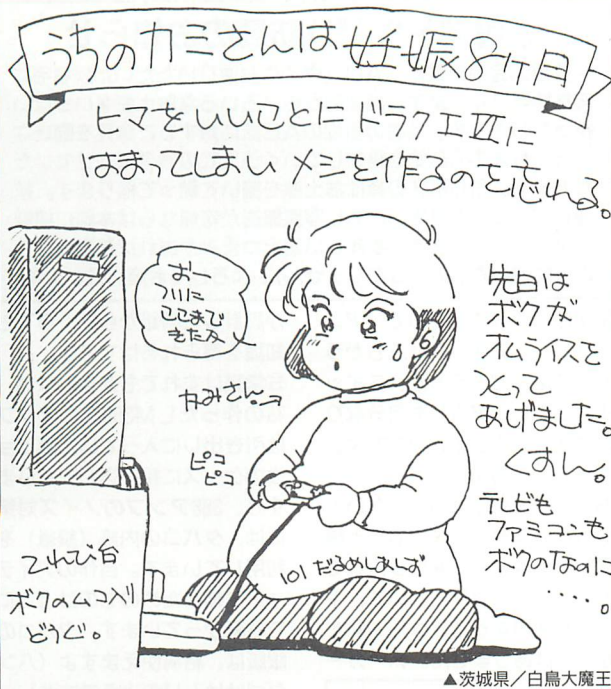 うちのカミさんは妊娠8ヶ月
ヒマをいいことにドラクエⅥに
はまってしまいメシを作るのを忘れる。
おーっ
ついに
ここまで
きたみ
かみさん→
ピコ
ピコ
先日は
ボクが
オムライスを
つくって
あげました。
くすん。
テレビも
ファミコンも
ボクのなのに
・・・・。
101 だるめしあんず
てれび台
ボクのムコ入り
どうぐ。
▲茨城県／白鳥大魔王